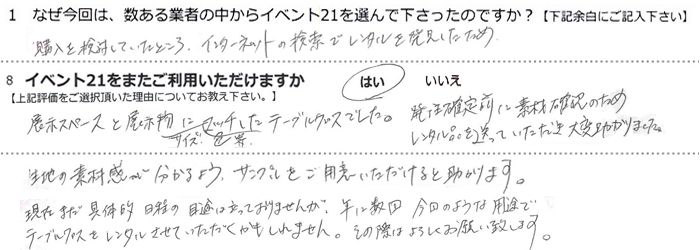 1 なぜ今回は、数ある業者の中からイベント21を選んで下さったのですか？【下記余白にご記入下さい】
購入を検討していたところ、インターネットの検索でレンタルを発見したため
8 イベント21をまたご利用いただけますか はい いいえ
【上記評価をご選択頂いた理由についてお教え下さい。】
展示スペースと展示物にマッチしたテーブルクロスでした。
サイズ、色
発注確定前に素材確認のため
レンタル品を送っていただき大変助かりました。
生地の素材感が分かるよう、サンプルをご用意いただけると助かります。
現在まだ具体的日程の目途は立っておりませんが、年に数回 今回のような用途で
テーブルクロスをレンタルさせていただくかもしれません。その際はよろしくお願い致します。